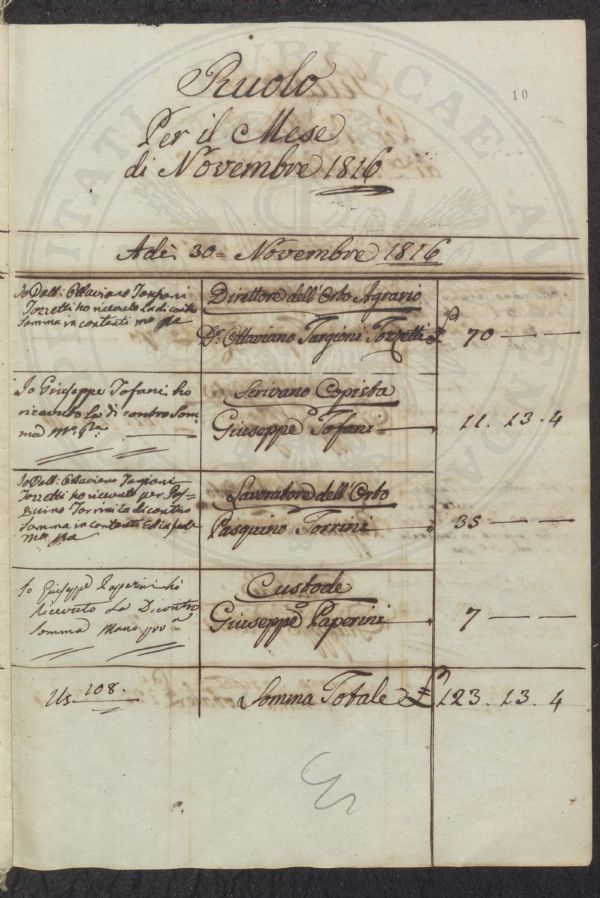 10
Ruolo
Per il Mese
di Novembre 1816
Adì 30 = Novembre 1816
Io Dott: Ottaviano Targioni
Tozzetti ho ricevuto la di contro
Somma in contanti mº ppa
Direttore dell'Orto Agrario
Dr. Ottaviano Targioni Tozzetti £ 70 — —
Io Giuseppe Tofani ho
ricevuto La di contro Som
ma Mº. ppa
Scrivano Copista
Giuseppe Tofani — 11. 13. 4
Io Dott: Ottaviano Targioni
Tozzetti ho ricevuto per Pas=
quino Torrini la di contro
Somma in contanti
mº ppa
Lavoratore dell'Orto
Pasquino Torrini — 35 — —
Io Giuseppe Paperini hò
Ricevuto La Dicontro
Somma Mano pro.ª
Custode
Giuseppe Paperini — 7 — —
Us. 108.
Somma Totale £ 123. 13. 4